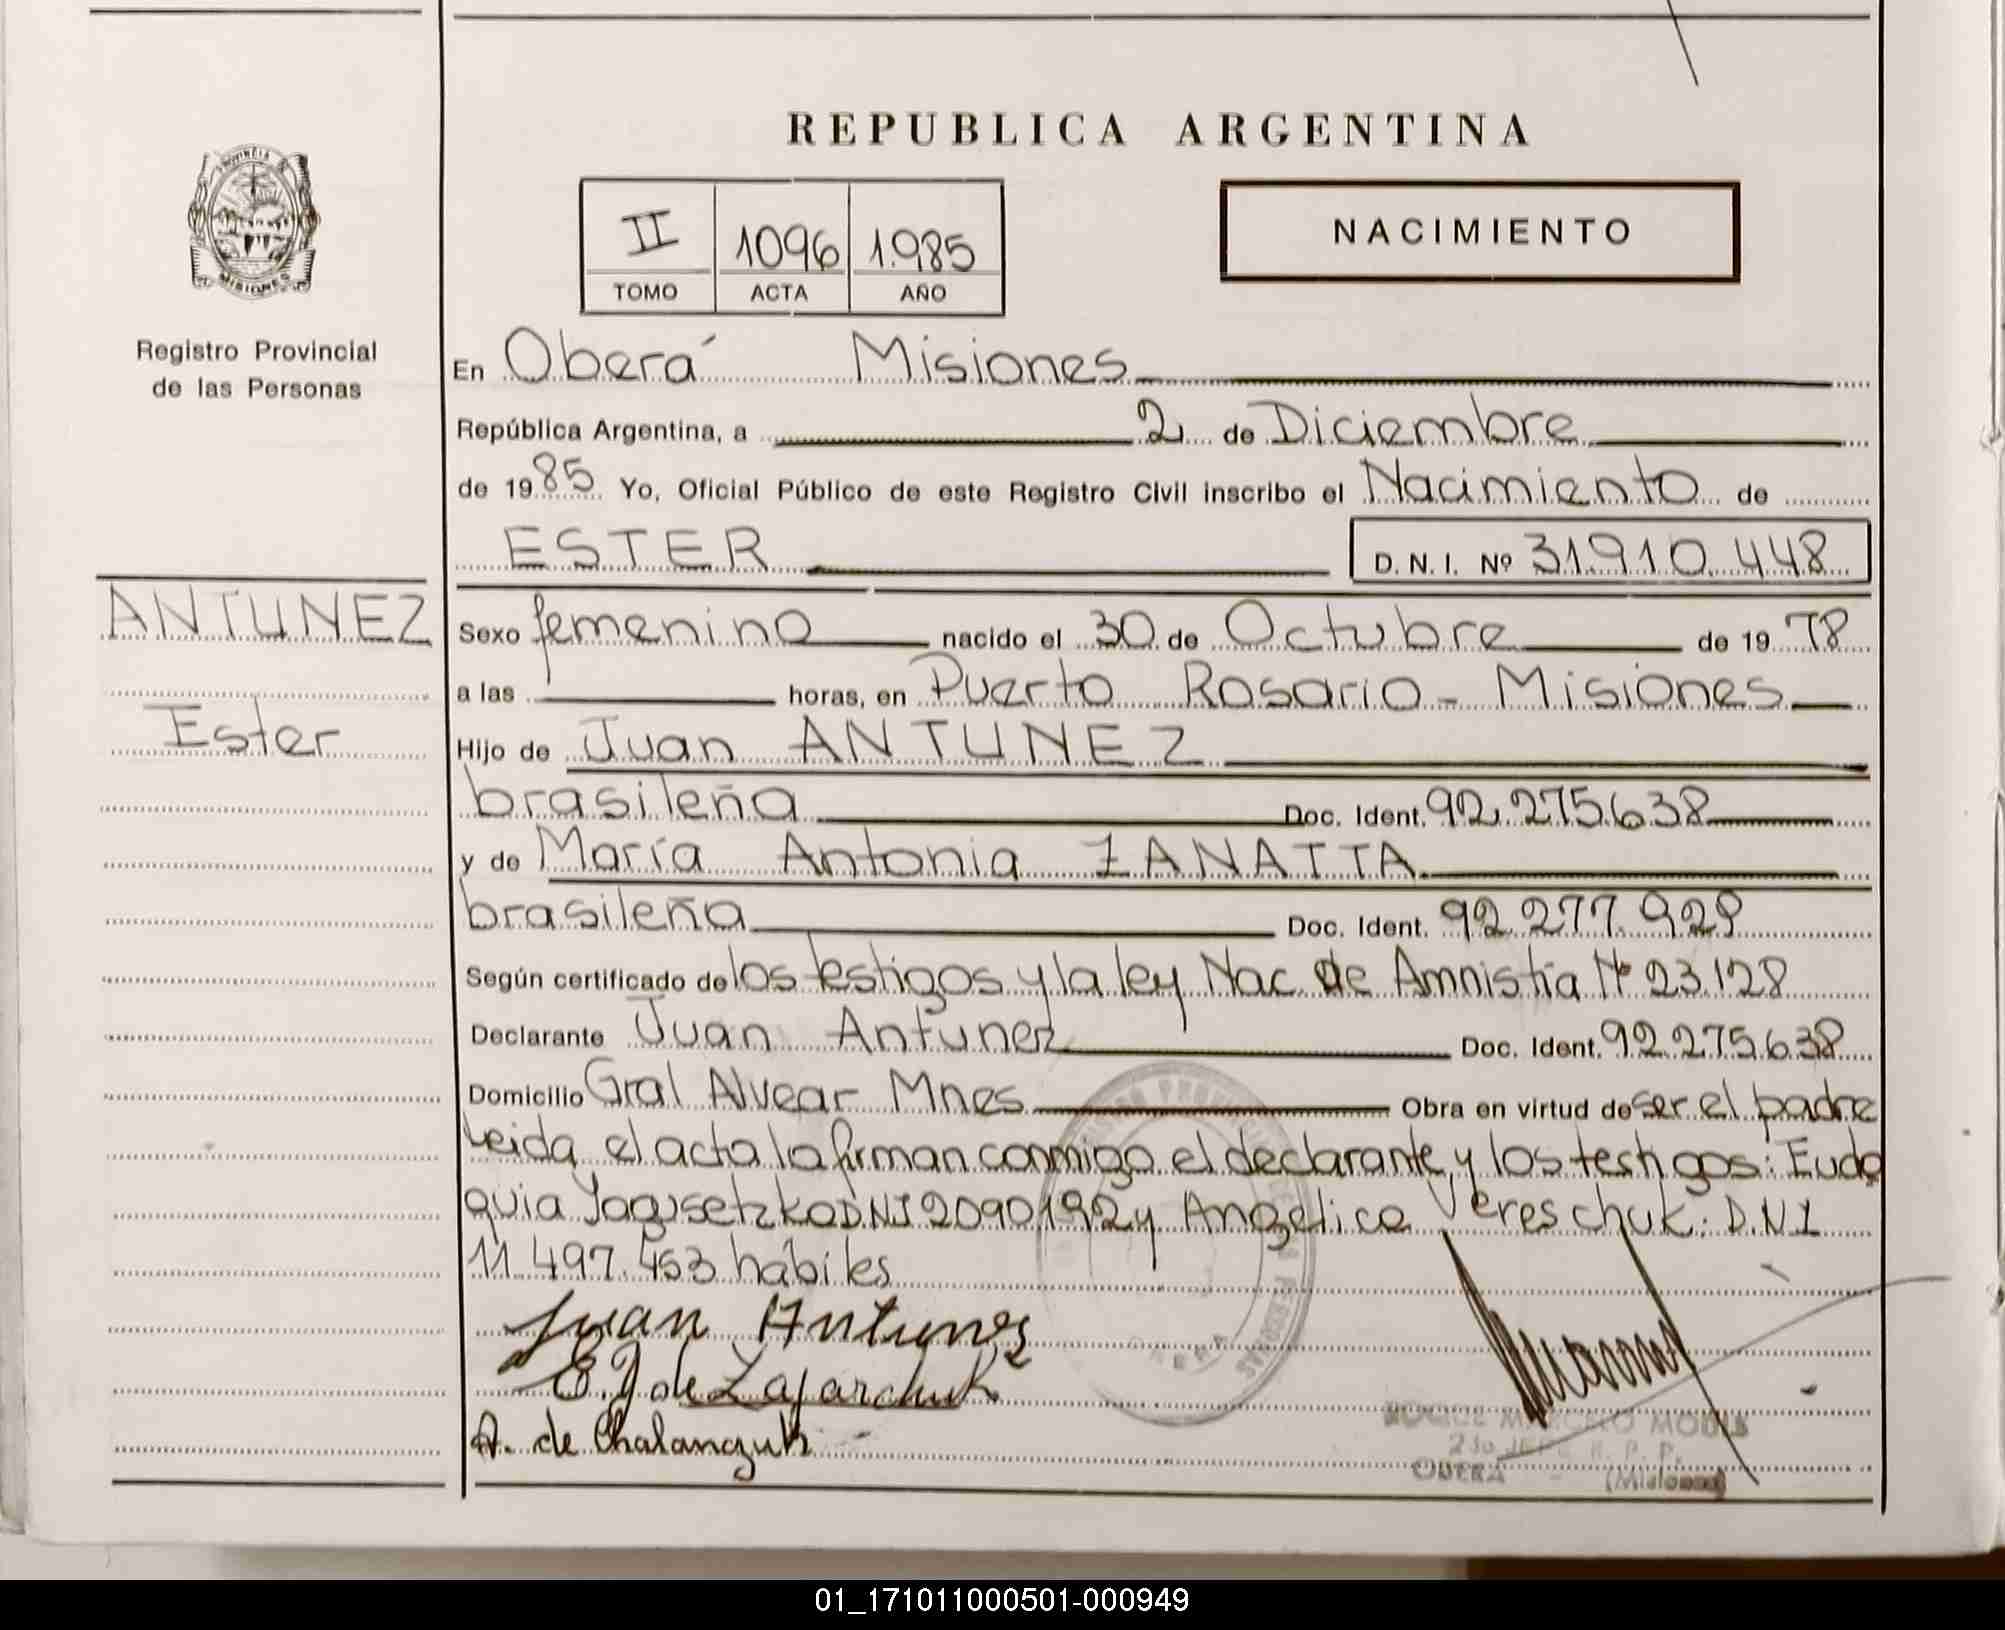 REPUBLICA ARGENTINA
PROVINCIA
MISIONES
Registro Provincial
de las Personas
II 1096 1.985
TOMO ACTA AÑO
NACIMIENTO
En Oberá Misiones
República Argentina, a 2 de Diciembre
de 1985 Yo, Oficial Público de este Registro Civil inscribo el Nacimiento de
ESTER D. N. I. Nº 31.910.448
ANTUNEZ
Ester
Sexo femenino nacido el 30 de Octubre de 1978
a las horas, en Puerto Rosario - Misiones
Hijo de Juan ANTUNEZ
brasileña Doc. Ident. 92.275.638
y de María Antonia ZANATTA
brasileña Doc. Ident. 92.277.929
Según certificado de los testigos y la ley Nac de Amnistía Nº 23.128
Declarante Juan Antunez Doc. Ident. 92.275.638
Domicilio Gral Alvear Mnes Obra en virtud de ser el padre
Leida el acta la firman conmigo el declarante y los testigos: Eudo
quia DNI 2090192 y Angélica Vereschuk. D.N.I
11.497.453 hábiles
Juan Antunez
E. J de Lajarchuk
A. de Chalanczuk
ROQUE MARCELO
2do JEFE R. P. P.
OBERA (Misiones)
01_171011000501-000949